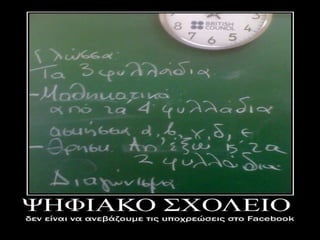 8
7 6 5
4
BRITISH
COUNCIL
Γλώσσα:
Τα 3 φυλλάδια
- Μαθηματικά
από τα 4 φυλλάδια
ασκήσεις α, β, γ, δ, ε
- Θρησκ. Απ' έξω
τα
2 φυλλάδια
Διαγώνισμα
ΨΗΦΙΑΚΟ ΣΧΟΛΕΙΟ
δεν είναι να ανεβάζουμε τις υποχρεώσεις στο Facebook